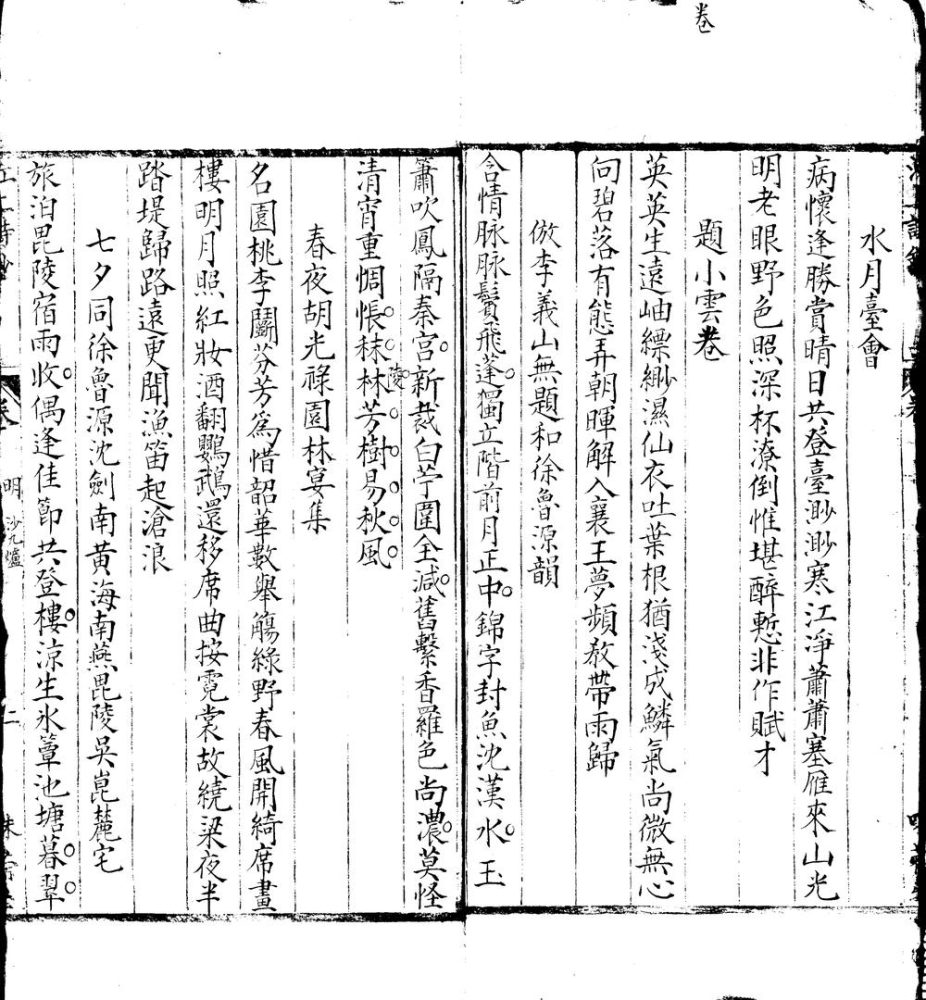 卷
水月臺會
病懷逢勝賞晴日共登臺渺渺寒江淨蕭蕭塞雁來山光
明老眼野色照深杯潦倒惟堪醉慙非作賦才
題小雲卷
英英生遠岫縹緲濕仙衣吐葉根猶淺成鱗氣尚微無心
向碧落有態弄朝暉解入襄王夢頻教帶雨歸
倣李義山無題和徐魯源韻
含情脉脉鬢飛蓬獨立階前月正中錦字封魚沈漢水玉
簫吹鳳隔秦宮新裁白苧圍全減舊繫香羅色尚濃莫怪
清宵重惆悵秣林芳樹易秋風
陵
春夜胡光祿園林宴集
名園桃李鬭芬芳為惜韶華數舉觴綠野春風開綺席畫
樓明月照紅妝酒翻鸚鵡還移席曲按霓裳故繞梁夜半
踏堤歸路遠更聞漁笛起滄浪
七夕同徐魯源沈劍南黃海南燕毘陵吳崑麓宅
旅泊毘陵宿雨收偶逢佳節共登樓涼生氷簟池塘暮翠
卷 明 二